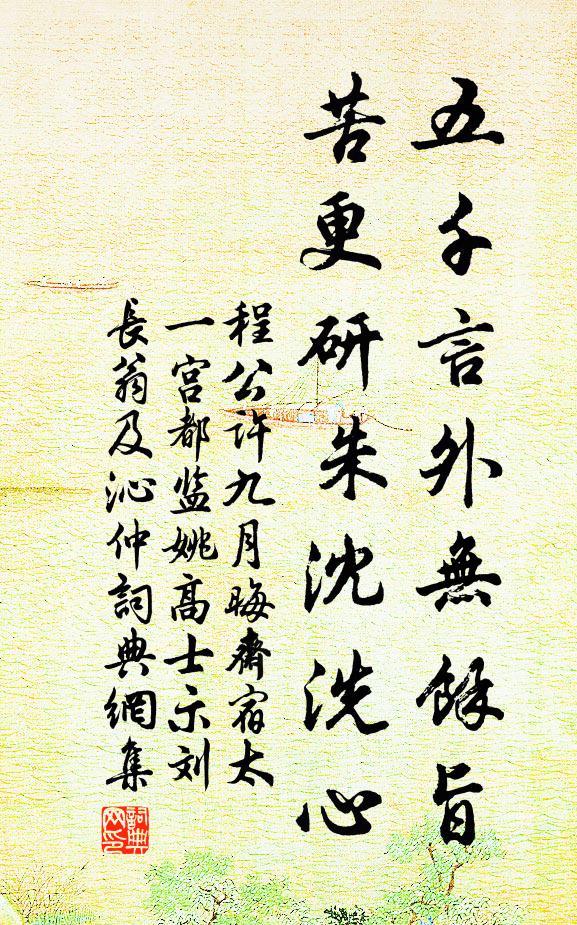 五千言外無餘旨
苦更研朱沈洗心
程公許九月晦齋宿太
一宮都监姚高士示刘
長翁及沁仲詞典網集
詞典
网印